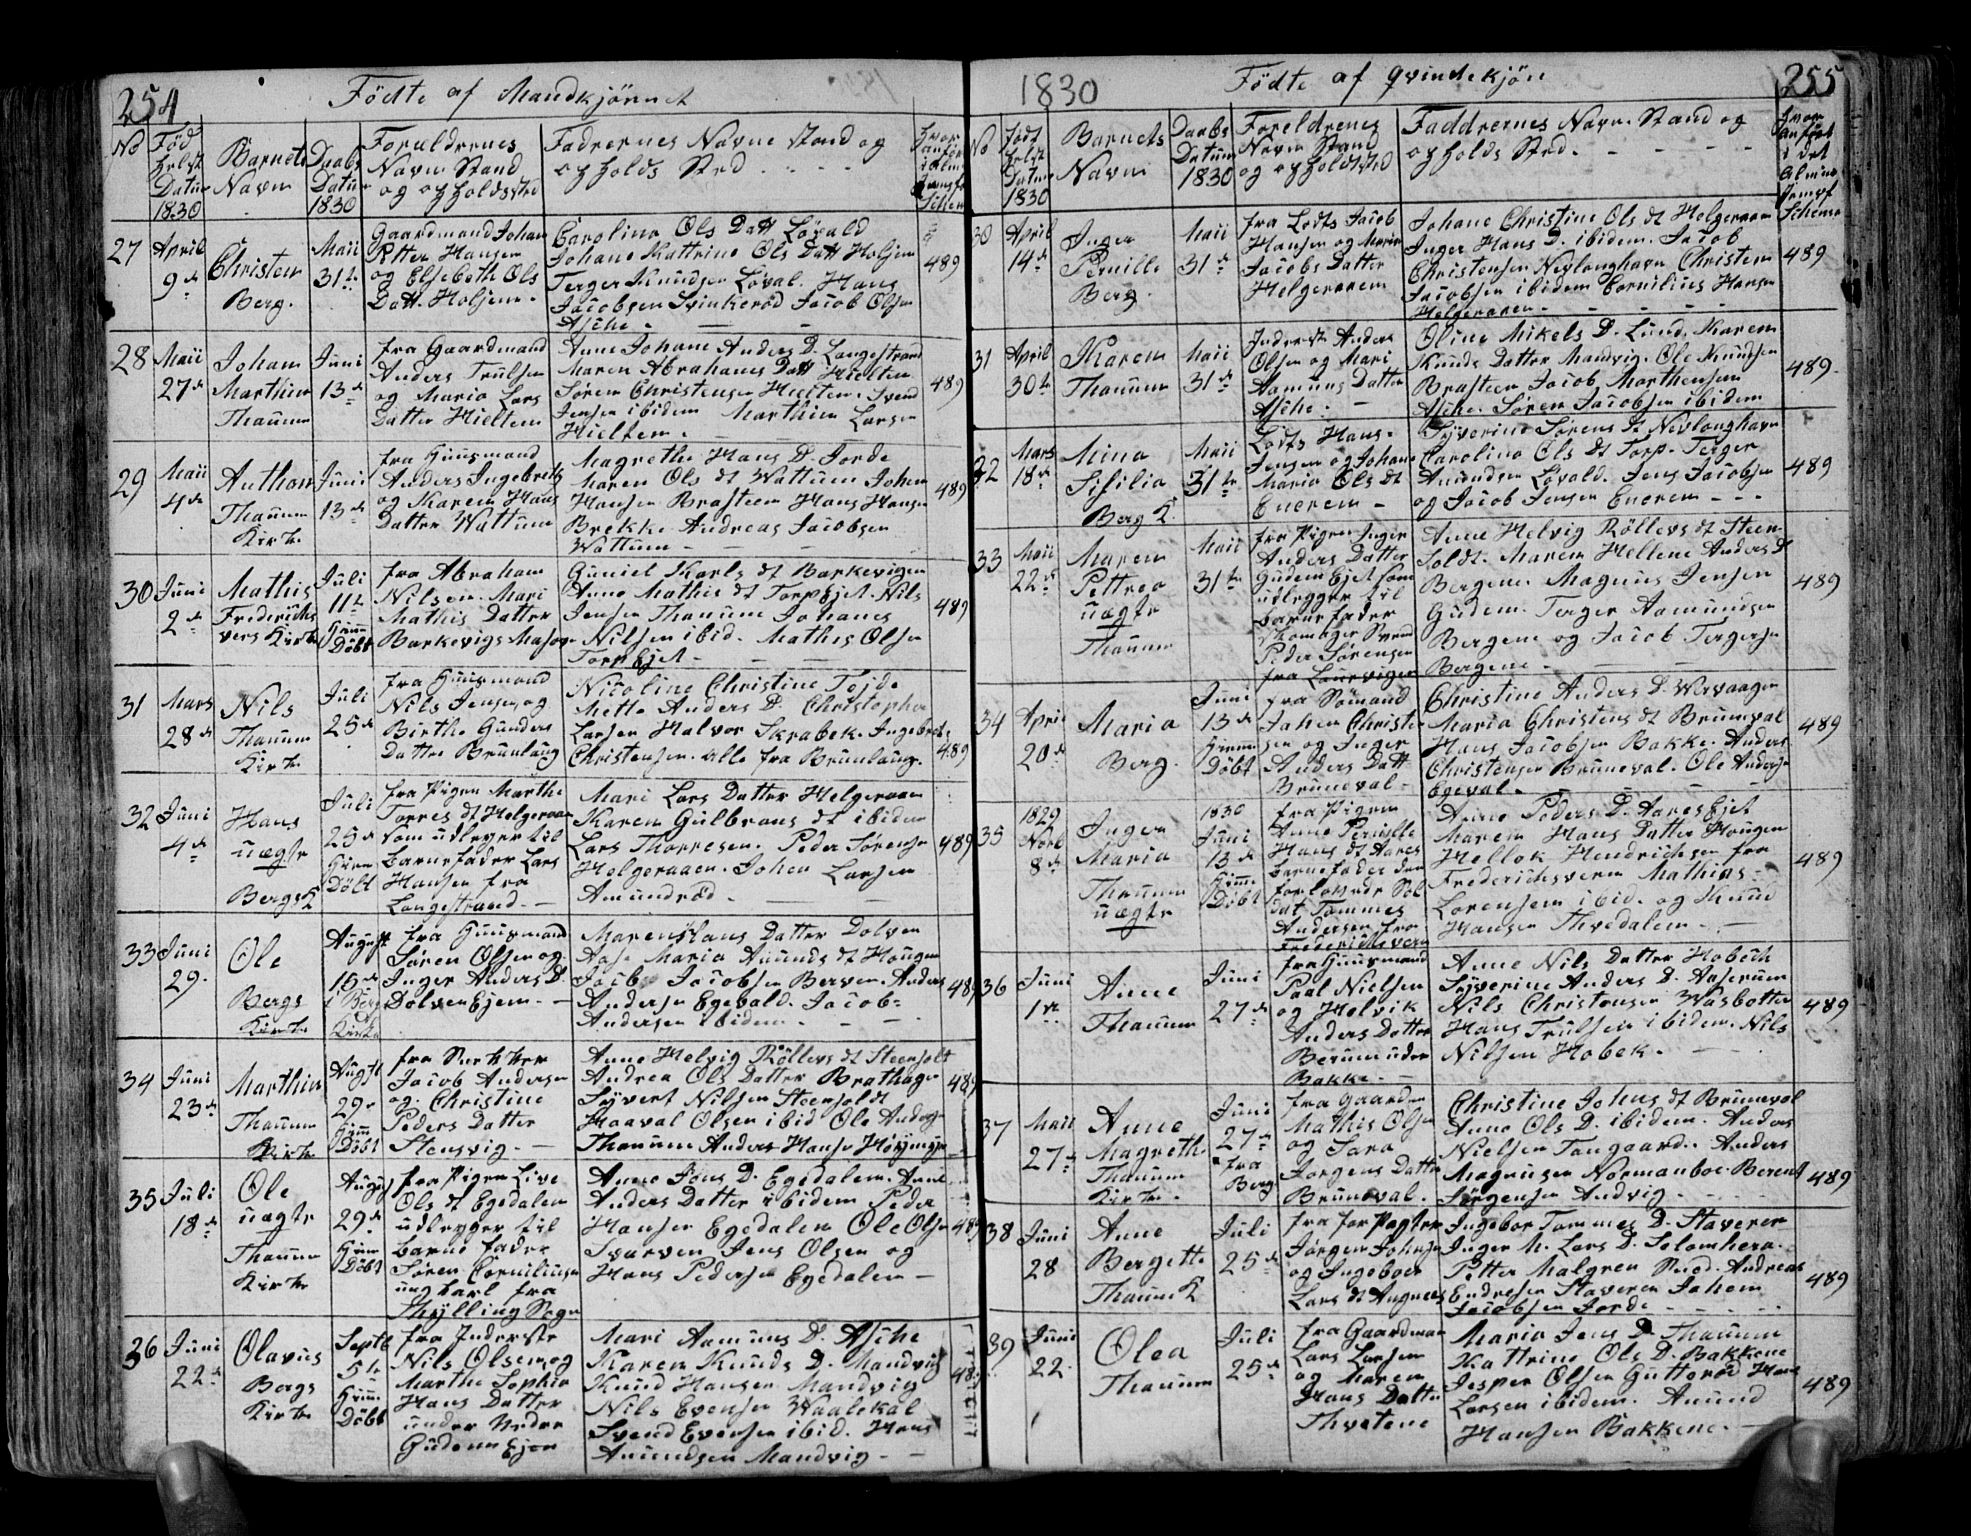 254
Födte af Mandkjönnet
No
Fød
helst
Datum
1830
Barnets
Navn
Daabs
Datum
1830
Foreldrenes
Navn Stand
og opholdssted
Fadrernes Navne stand og
opholds Sted
27
April
9de
Christen
Berg.
Maii
31te
Gaardmand Johan
Petter Hansen
og Elsebeth Ols
Datt. Holjem.
Carolina Ols Datt Lövald
Johane Kattrine Ols Datt Holjem
Terger Knudsen Loval. Hans
Jacobsen Svinkeröd Jacob Olsen
Asche.
489
28
Maii
27de
Johan
Marthin
Thaum
Juni
13de
fra Gaardmand
Anders Trulsen
og Maria Lars
Datter Hieltem
Anne Johane Anders D. Langestrand
Maren Abrahams Datt Hielten
Sören Christensen Hielten. Svend
Jensen ibidem Marthin Larsen
Hieltem.
489
29
Maii
4de
Anthon
Thaum
Kirke
Juni
13de
fra Huusmand
Anders Ingebrits
og Karen Hans
Datter Wattum
Magrethe Hans D. Jorde
Maren Ols dt Wattum Johen
Hansen Brasteen Hans Hansen
Brekke Andreas Jacobsen
Wattum
489
30
Juni
2de
Mathis
Frederichs
vern Kirke
Juli
11te
Hiem
Döbt
fra Abraham
Nilsen. Mari
Mathis Datter
Barkevigs
Guniel Karls dt Barkevigen
Anne Mathis dt TorpEjet. Nils
Jensen Thaum Johanes
Nilsen ibid. Mathis Olsen
TorpEjet
489
31
Mars
28de
Nils
Thaum
Kirke
Juli
25de
fra Huusmand
Nils Jensen og
Birthe Gunders
Datter Brunlaug
Nicoline Christine Tojde
Mette Anders D. Christopher
Larsen Halvor Skrabek. Ingebret
Christensen. alle fra Brunlaug.
489
32
Juni
4de
Hans
uægte
Bergs K
Juli
25de
Hiem
Döbt
fra Pigen Marthe
Torres dt Helgeraaen
som udleger til
barnefader Lars
Hansen fra
Langestrand
Mari Lars Datter Helgeraaen
Karen Gulbrans dt ibidem
Lars Thorresen. Peder Sörensen
Helgeraaen. Johen Larsen
Amundröd.
489
33
Juni
29.
Ole
Bergs
Kirke
August
i Bergs
Kirke
fra Huusmand
Sören Olsen og
Inger Anders D.
Dolven Ejem.
Maren Hans Datter Dolven
Maria Amunds dt Hougen
Jacob Jacobsen Berven. Anders
Andersen Egebald. Jacob
Andersen ibidem
489
34
Juni
23de
Marthin
Thaum
Kirke
Augst
29de
Hiem
Döbt
Jacob Andersen
og Christine
Peders Datter
Stensvig
Anne Helvig Röllevs dt Steenholt
Andrea Ols Datter Brathagen
Syvert Nilsen Steenholdt
Haaval Olsen ibid Ole Anders
Thaum Anders Hansen
489
35
Juli
18de
Ole
uægte
Thaum
Kirke
August
29de
Hiem
Döbt
fra Pigen Live
Ols dt Egedalen
udlegger til
barne fader
Sören Corniliusen
ungkarl fra
Thyllling Sogn
Anne Jöns D. Egedalem. Anne
Anders Datter ibidem Peder
Hansen Egedalen Ole Olsen
Svarven Jens Olsen og
Hans Pedersen Egedalen
489
36
Juni
22de
Olavus
Bergs
Kirke
Septb
5te
Hiem
Döbt
fra Inderste
Nils Olsen og
Marthe Sophie
Hans Datter
under Neder
Gudem Ejen
Mari Aamuns D. Asche
Karen Knuds D. Mandvig
Knud Hansen Mandvig
Nils Evensen Waalekal
Svend Evensen ibid. Hans
Amundsen Mandvig
489
1830
Födte af qvindekjön
255
No
Født
helst
Datum
1830
Barnets
Navn
Daabs
Datum
1830
Foreldrenes
Navn Stand
og opholdsted
Faddrernes Navn. Stand og
opholds Sted.
hvor
anfört
i det
Almin
Jempf
Schema
30
April
14de
Inger
Pernille
Berg.
Maii
31de
fra Lods Jacob
Hansen og Maren
Jacobs Datter
Helgeraaem
Johane Christine Ols dt Helgeraaen
Inger Hans D. ibidem. Jacob
Christensen Nevlonghavn Christen
Jacobsen ibidem Cornilius Hansen
Helgeraaen
489
31
April
30te
Karem
Thaum
Maii
31de
Inderst Anders
Olsen og Mari
Aamuns Datter
Asche.
Oline Mikels D. Lund. Karem
Knuds Datter Mandvig. Ole Knudsen
Brasteen Jacob Marthensen
Asche. Sören Jacobsen ibidem
489
32
Mars
18de
Mina
Sisilia
Berg K
Maii
31te
Lods Hans
Jensen og Johane
Maria Ols dt
Enerem
Syverine Sörens D. Nevlonghavn
Carolina Ols dt Torp. Terger
Amundsen Lovald. Jens Jacobsen
og Jacob Jensen Enerem
489
33
Maii
22de
Maren
Pettrea
uægte
Thaum
Maii
31te
fra Pigen Inger
Anders Datter
Gudem Ejet som
udlegger til
barnefader
Skomager Svend
Peder Sörensen
fra Laurvigen
Anne Helvig Röllevs dt Steen
holdt. Maren Hellene Anders D
Bergene. Magnus Jensen
Gudem. Terger Aamundsen
Bergene og Jacob Tergersen
Bergene.
489
34
April
20de
Maria
Berg.
Juni
13de
Hiem
Döbt
fra Sömand
Johen Christen
sen og Inger
Anders Datt
Bruneval
Christine Anders D. Worvaagen
Maria Christens dt Brunval
Hans Jacobsen Bakke. Anders
Christensen Bruneval. Ole Anders
Egeval.
489
35
1829
Novb
8de
Inger
Maria
Thaum
uægte
1830
Juni
13de
Hiem
Döbt
fra Pigen
Anne Pernille
Hans dt Aares
barnefader den
forlovede Sol
dat Tommes
Andersen fra
Frederichsvern
Anne Peders D. Aares Ejet
Maren Hans Datter Hougen
Hellok Hendrichsen fra
Frederichsvern Mathias
Lorensen ibid. og Knud
Hansen Thvedalen
489
36
Juni
1te
Anne
Thaum
Juni
27de
fra Huusmand
Paal Nielsen
og Helvik
Anders Datter
Berum under
Bakke
Anne Nils Datter Hobech
Syverine Anders D. Aaserum
Nils Christensen Wasbotten
Hans Trulsen ibidem. Nils
Nilsen Hobek.
489
37
Maii
27de
Anne
Magrethe
Thaum
Kirke.
Juni
27de
fra
Berg
fra Gaarden
Mathis Olsen
og Sara
Jorgens Datter
Bruneval.
Christine Johens dt Bruneval
Anne Ols D. ibidem. Anders
Nielsen Tangaard. Anders
Magnusen Normanboe Berent
Jörgensen Andvig
489
38
Juni
28
Anne
Bergette
Thaum K
Juli
25de
fra forpagter
Jörgen Johnsen
og Ingeboer
Lars dt Agnes
Ingebor Tommes D. Staveren
Inger M. Lars D. Solomhera.
Petter Malgren Sued. Andreas
Endresen Staveren Johem
Jacobsen Jorde
489
39
Juni
22
Olea
Thaum
Juli
25de
fra Gaardman
Lars Larsen
og Maren
Hans Datter
Thvetene
Maria Jens D. Thaum
Kattrine Ols D. Bakkene
Jesper Olsen Gutteröd Hans
Larsen ibidem. Amund
Hansen Bakkene.
489